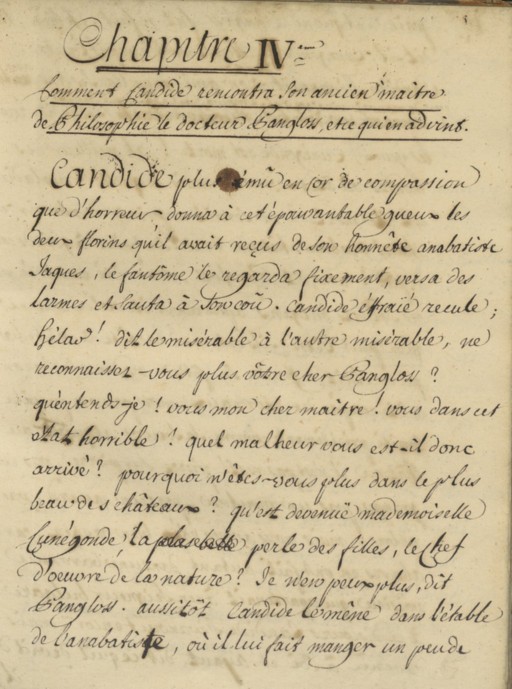 Chapitre IV.e
Comment Candide rencontra son ancien maitre
de Philosophie le docteur Pangloss, et ce qui en advint.
Candide plus ému encor de compassion
que d'horreur donna à cet épouvantable gueux les
deux florins qu'il avait reçus de son honnête anabatiste
Jaques, le fantôme le regarda fixement, versa des
larmes et sauta à son coû. Candide effraïé recule;
hélas! dit le misérable à l'autre misérable, ne
reconnaissez-vous plus vôtre cher Pangloss?
qu'entends-je! vous mon cher maitre! vous dans cet
etat horrible! quel malheur vous est-il donc
arrivé? pourquoi n'êtes-vous plus dans le plus
beau des châteaux? qu'est devenuë mademoiselle
Cunégonde, la perle des filles, le chef
d'oeuvre de la nature? Je n'en peux plus, dit
Pangloss. aussitôt Candide le mène dans l'étable
de l'anabatiste, où il lui fait manger un peu de